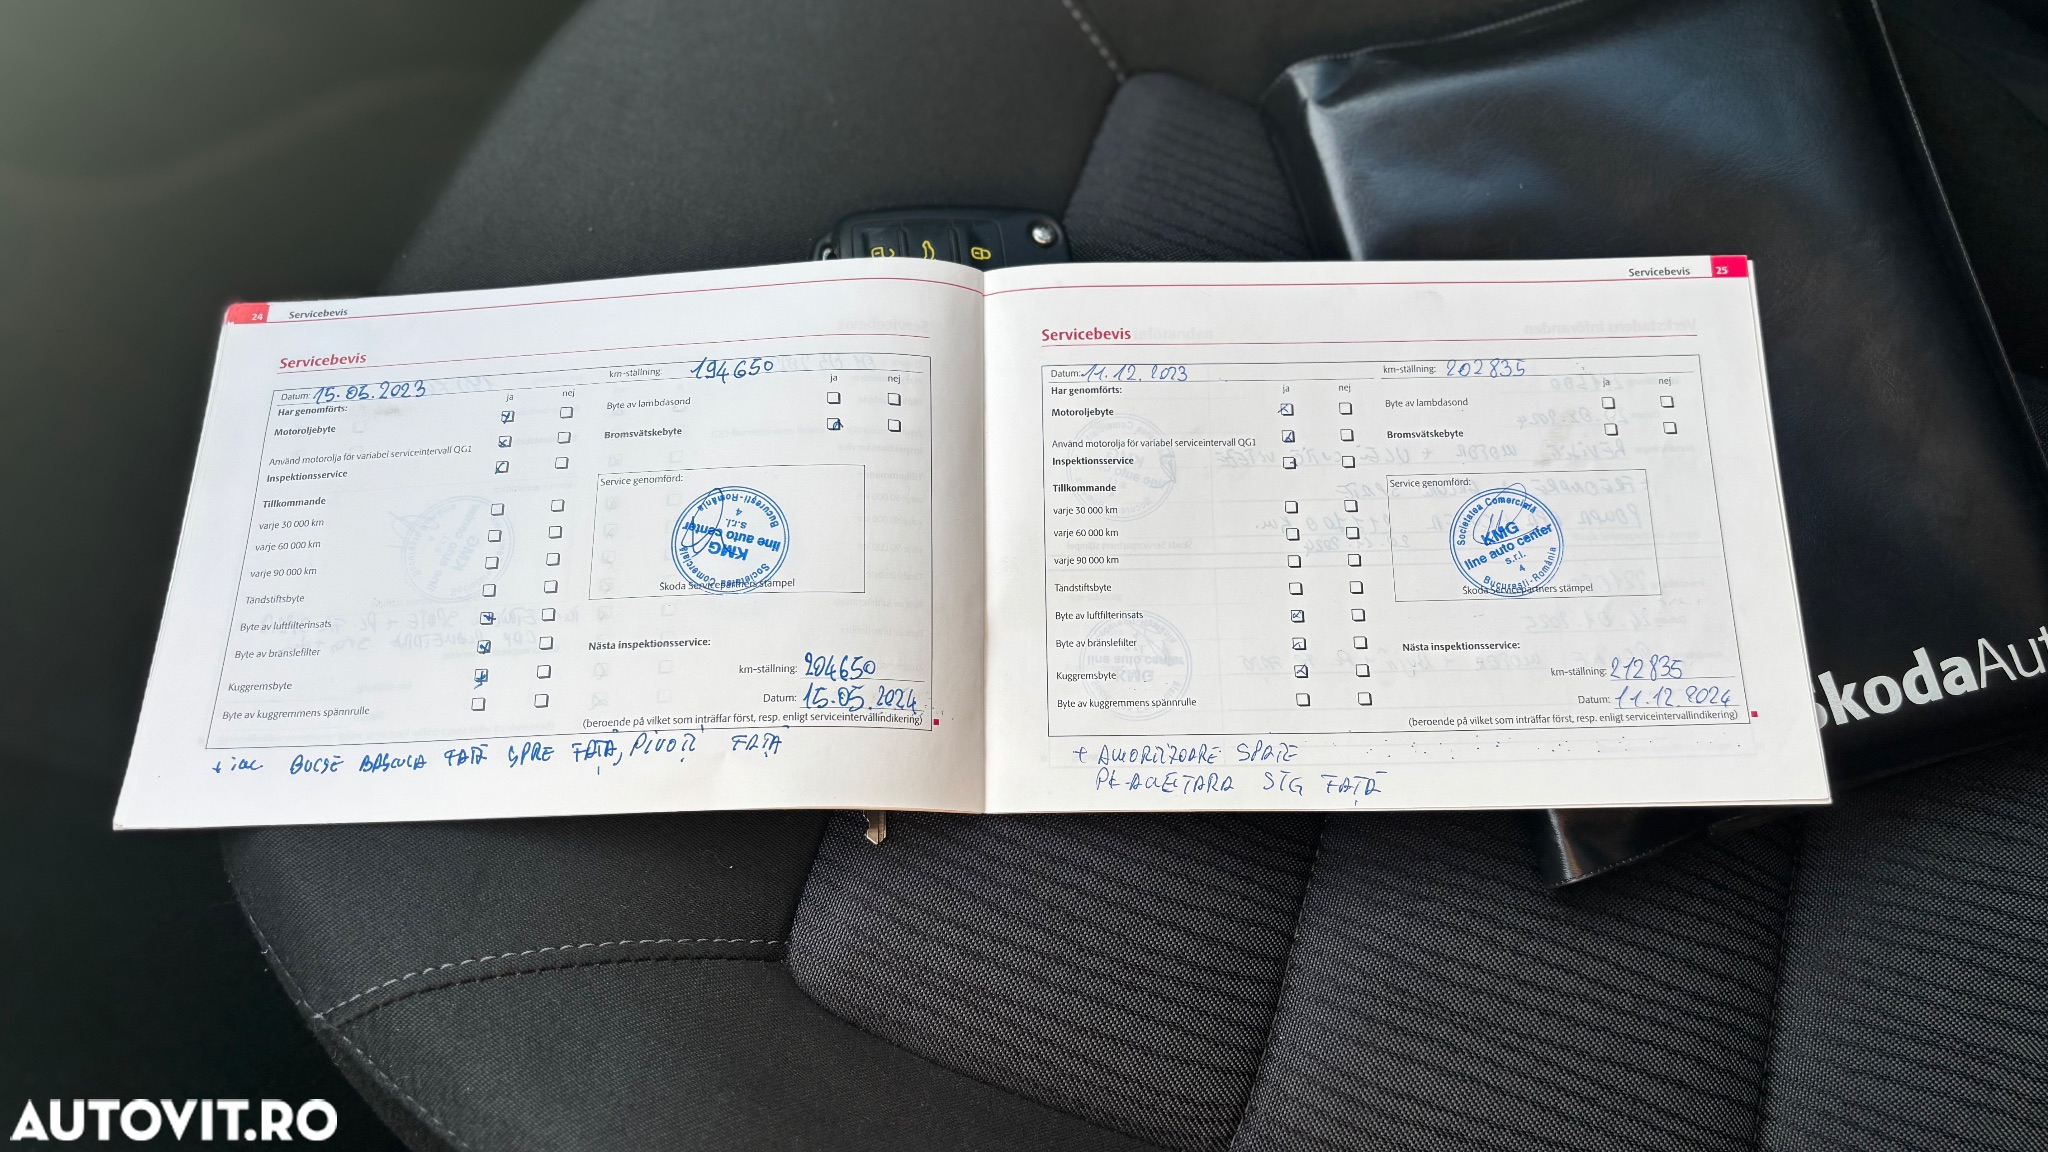 24 Servicebevis
Servicebevis
Datum: 15.05.2023 km-ställning: 194650
Har genomförts: ja nej ja nej
Motoroljebyte Byte av lambdasond
Använd motorolja för variabel serviceintervall QG1 Bromsvätskebyte
Inspektionsservice
Tillkommande Service genomförd:
varje 30 000 km
varje 60 000 km
varje 90 000 km
Tändstiftsbyte Škoda Servicepartners stämpel
Societatea Comercială
KMG
line auto center
s.r.l.
4
Bucureşti-România
Byte av luftfilterinsats
Byte av bränslefilter Nästa inspektionsservice:
Kuggremsbyte km-ställning: 204650
Byte av kuggremmens spännrulle Datum: 15.05.2024
(beroende på vilket som inträffar först, resp. enligt serviceintervallindikering)
BUCSE BASCULA FATĂ SPRE FAȚA, PIVOȚI FAȚA
Servicebevis 25
Servicebevis
Datum: 11.12.2023 km-ställning: 202835
Har genomförts: ja nej ja nej
Motoroljebyte Byte av lambdasond
Använd motorolja för variabel serviceintervall QG1 Bromsvätskebyte
Inspektionsservice
Tillkommande Service genomförd:
varje 30 000 km
varje 60 000 km
varje 90 000 km
Tändstiftsbyte Škoda Servicepartners stämpel
Societatea Comercială
KMG
line auto center
s.r.l.
4
Bucureşti-România
Byte av luftfilterinsats
Byte av bränslefilter Nästa inspektionsservice:
Kuggremsbyte km-ställning: 212835
Byte av kuggremmens spännrulle Datum: 11.12.2024
(beroende på vilket som inträffar först, resp. enligt serviceintervallindikering)
+ AMORTIZOARE SPATE
PLANETARA STG FAȚĂ
ŠkodaAut
AUTOVIT.RO